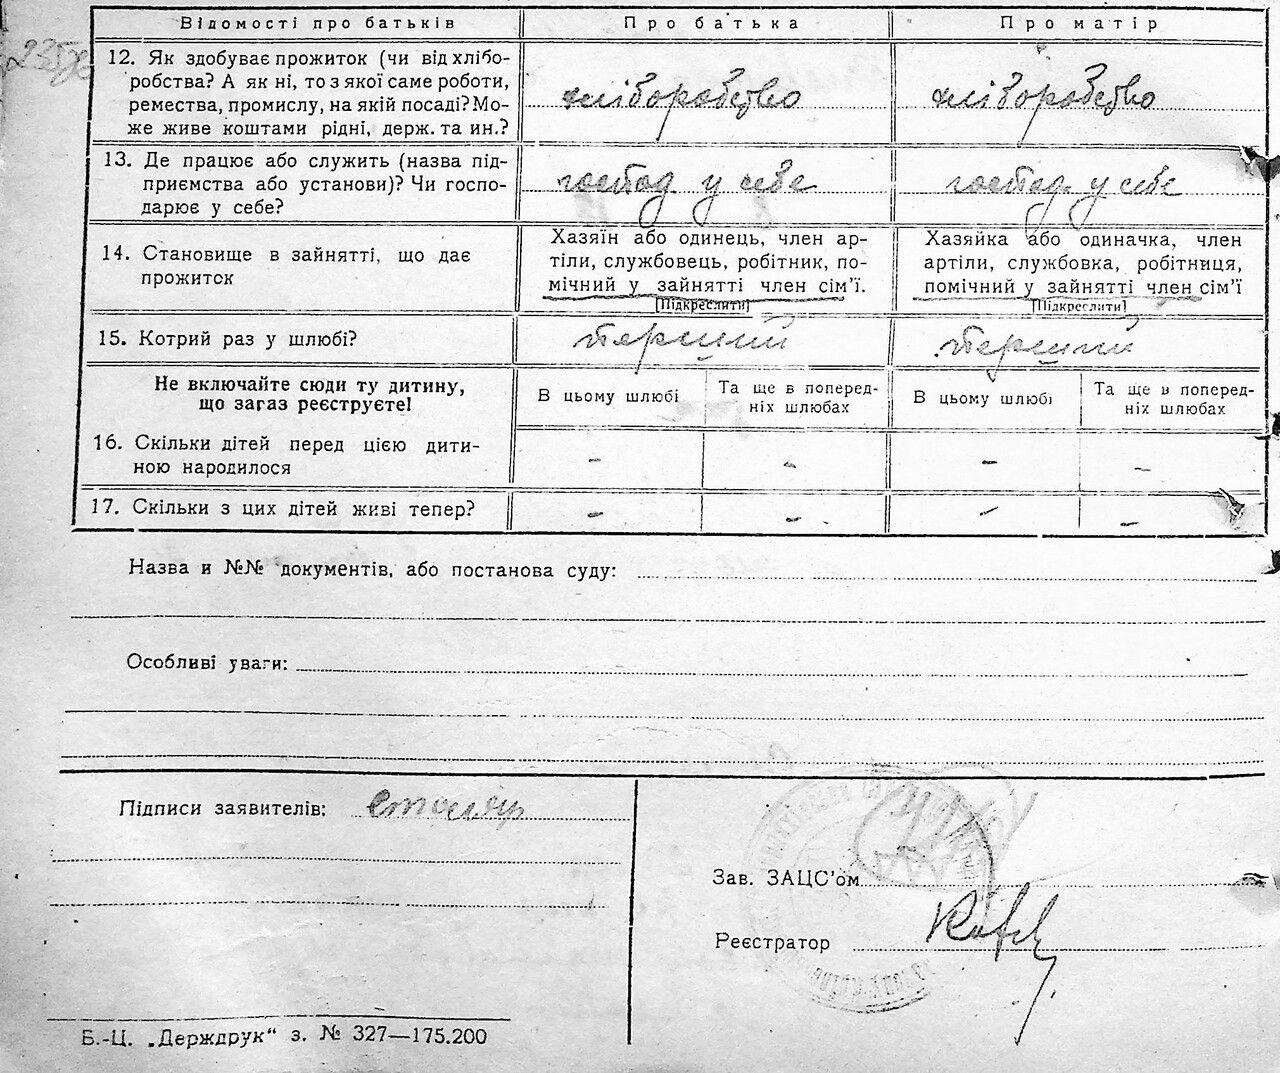 Відомості про батьків Про батька Про матір
12. Як здобуває прожиток (чи від хлібо-
робства? А як ні, то з якої саме роботи,
ремества, промислу, на якій посаді? Мо-
же живе коштами рідні, держ. та ин.?
хліборобство хліборобство
13. Де працює або служить (назва під-
приємства або установи)? Чи госпо-
дарює у себе?
господ у себе господ. у себе
14. Становище в зайнятті, що дає
прожиток
Хазяїн або одинець, член ар-
тіли, службовець, робітник, по-
мічний у зайнятті член сім'ї.
[Підкреслити]
Хазяйка або одиначка, член
артіли, службовка, робітниця,
помічний у зайнятті член сім'ї
[Підкреслити]
15. Котрий раз у шлюбі? перший перший
Не включайте сюди ту дитину,
що загаз реєструєте!
В цьому шлюбі
Та ще в поперед-
ніх шлюбах
В цьому шлюбі
Та ще в поперед-
ніх шлюбах
16. Скільки дітей перед цією дити-
ною народилося
- - - -
17. Скільки з цих дітей живі тепер? - - - -
Назва и №№ документів, або постанова суду:
Особливі уваги:
Підписи заявителів: столяр
Зав. ЗАЦС'ом
Реєстратор
Б.-Ц. „Держдрук" з. № 327—175.200